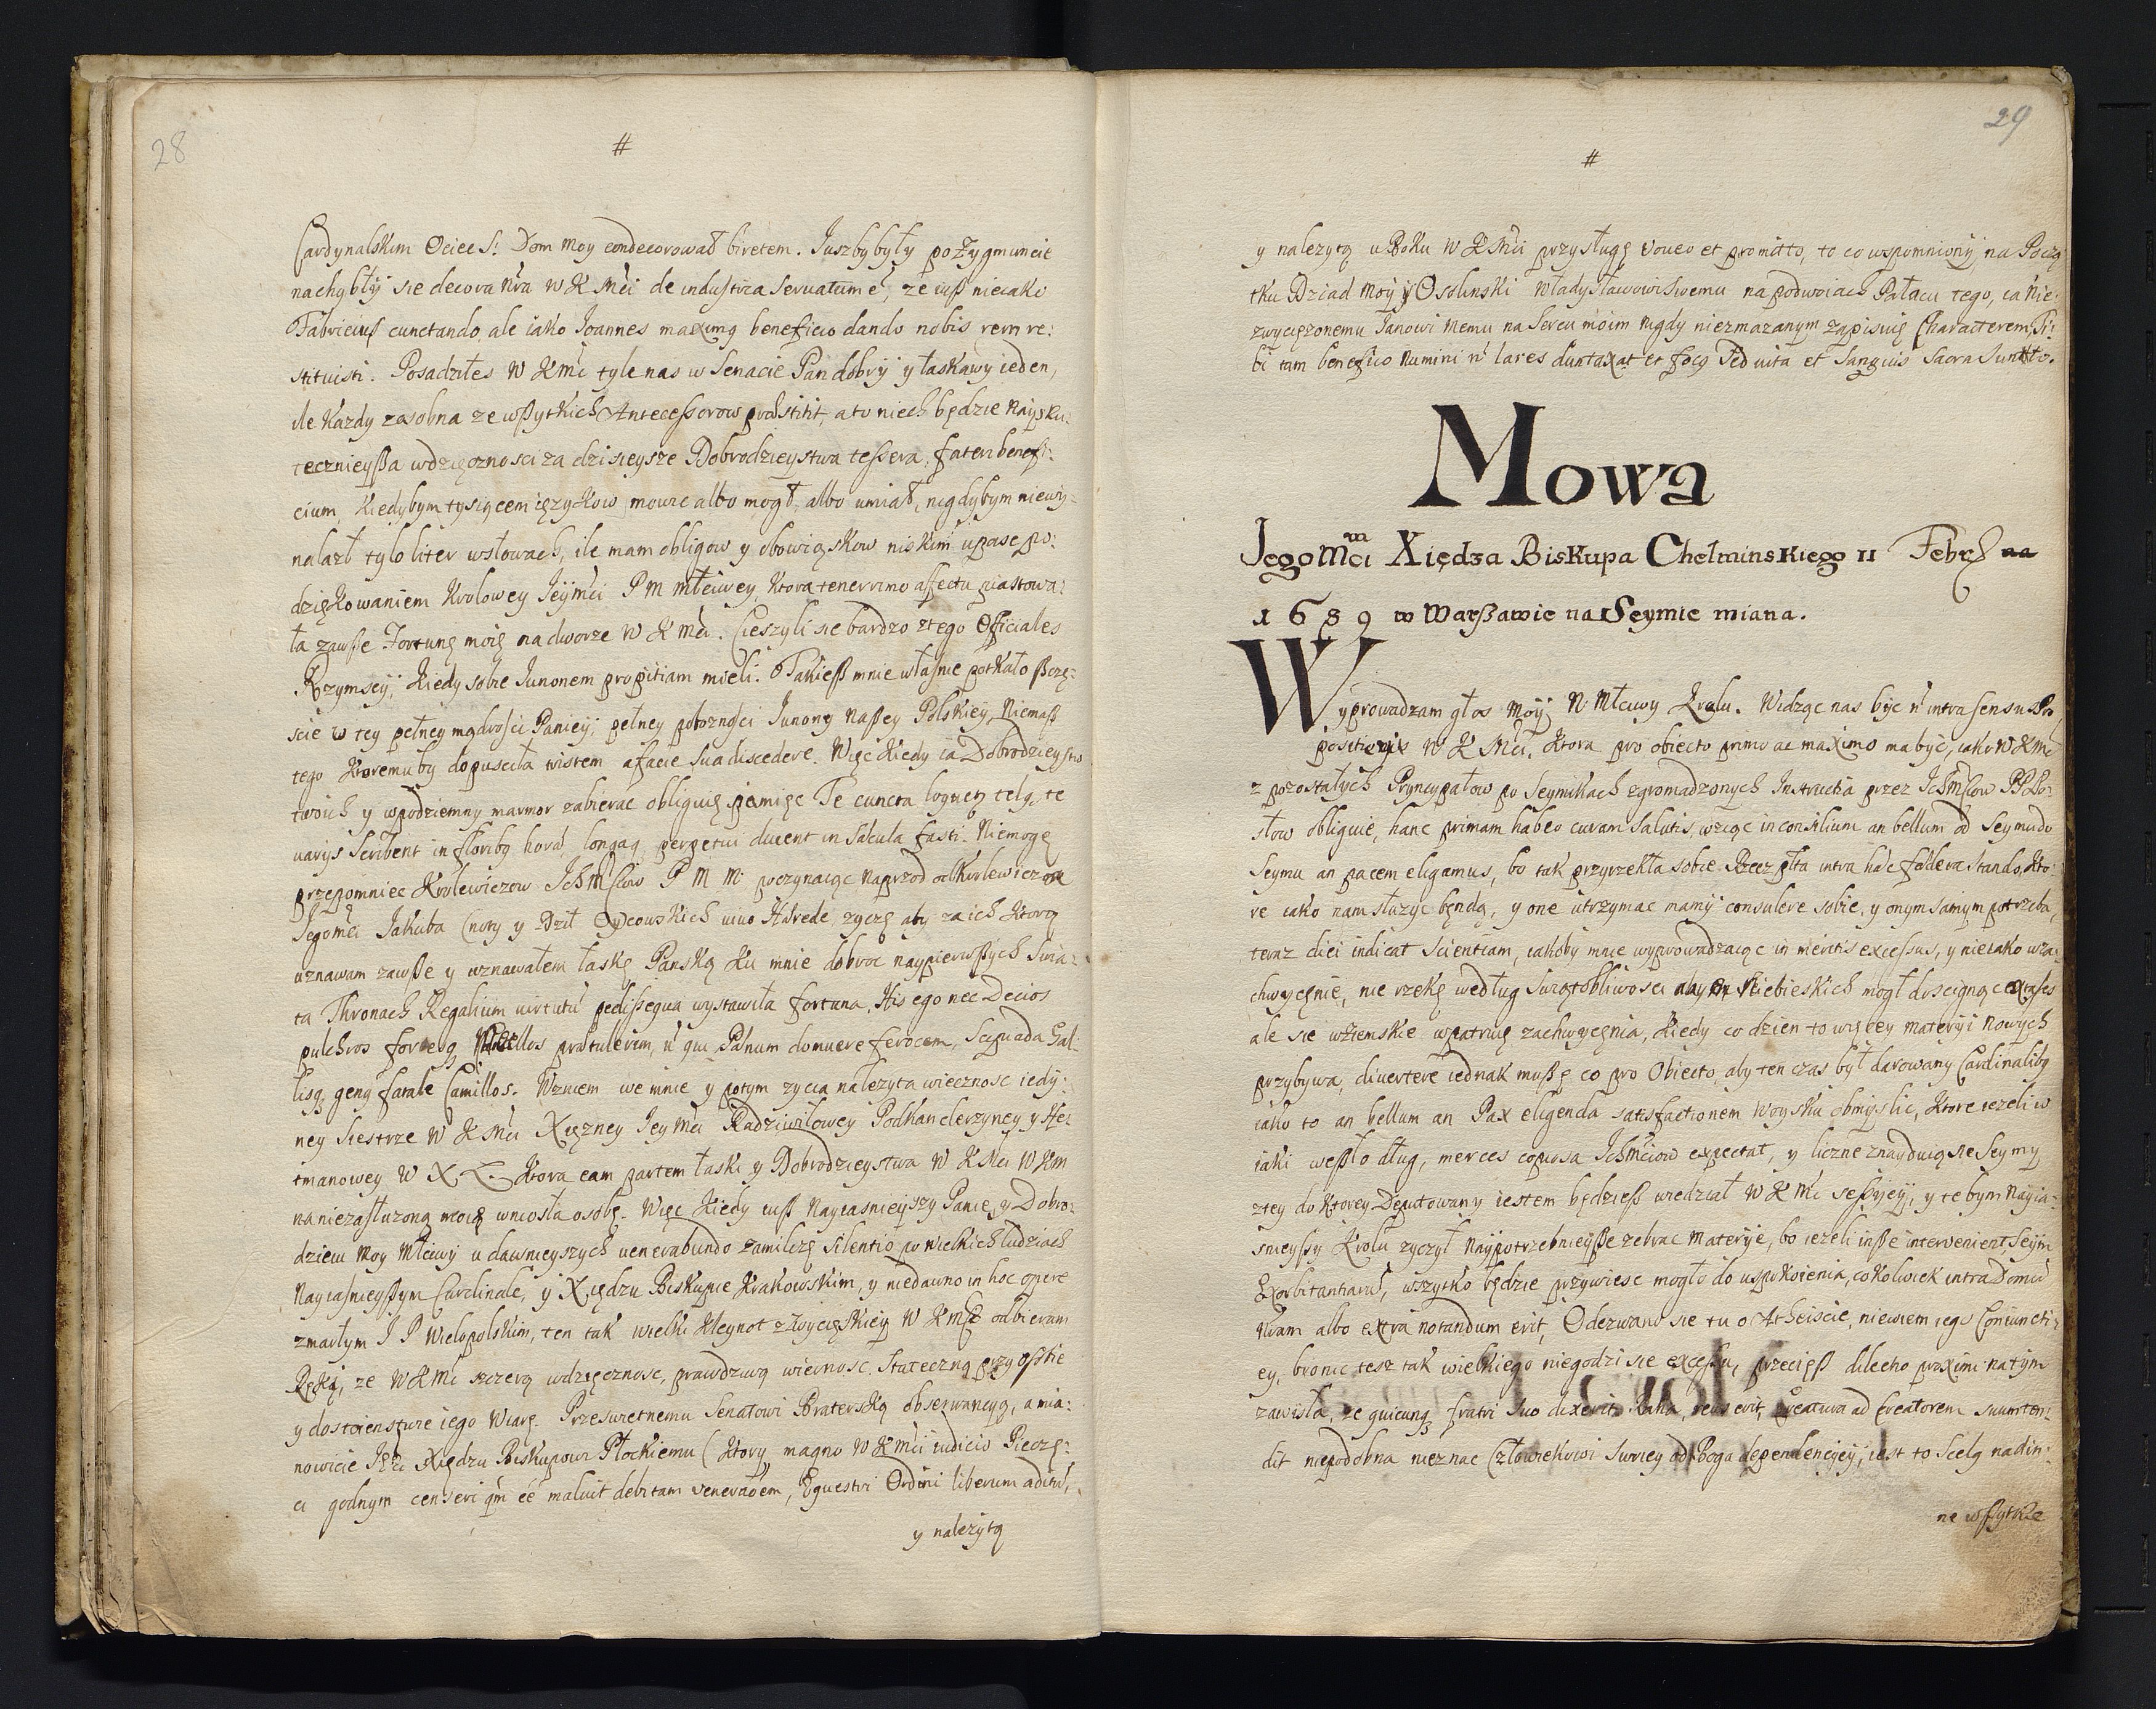 28
#
Cardynalskim Ociec S: Dom moy condecorował biretem. Juszby były po Zygmuncie
nachyliły sie decora nra W K Mci de industria servatum é, ze iuß nie iako
Fabricius cunctando, ale iako Joannes maximo beneficio dando nobis rem re:
stituisti. Posadziłes W K Mć tyle nas w Senacie Pan dobrÿ y łaskawy ieden,
ile Kazdy zosobna ze wßytkich Antecessorow præstitit, a to niech będzie naysku:
tecznieyßa wdzięcznosci za dzisieysze Dobrodzieystwa tessera, fateri benefi:
cium, Kiedybym tysiącem ięzykow mowic albo mogł, albo umiał, nigdybym niewy:
nalazł tylo liter w słowach, ile mam obligow y obowiązkow niskim upasć po:
dziękowaniem Krolowey Jeÿmci P M Młciwey, Ktora tenerrimo affectu piastowa:
ła zawße Fortunę moię na dworze W K Mci. Cieszyli sie bardzo z tego Officiales
Rzymscÿ, Kiedy sobie Junonem propitiam mieli. Takieß mnie własnie potkało ßczę:
scie w tey pełney mądrosci Paniey, pełney poboznosci Junony naßey Polskiey, Niemaß
tego Ktoremuby dopusciła tristem a facie sua discedere. Więc Kiedy ia Dobrodzieystw
twoich y w podziemny marmor zabierac obliguię pamięc Te cuncta loquetur telq te
varijs scribent in floribq hora, longaq perpetui ducent in sæcula fasti. Niemogę
przepomniec Krolewiczow Jchmsciow P M M. poczynaiąc naprzod od Krolewicza
Jegomci Jakuba Cnoty y Dził Oycowskich vivo Hærede, zyczę aby za ich Ktorą
uznawam zawße y uznawałem łaskę Pańską Ku mnie dobroc naypierwßych swia:
ta Thronach Regalium virtutu pedissequa wystawiła fortuna. His ego nec Decios
pulchros fortesq Metellos prætulerim, n qui Pænum domuere ferocem, Scipiada Gal:
lisq genq fatale Camillos. Wzniem we mnie y potym zycia nalezyta wiecznosc iedÿ:
ney Siestrze W K Mci Xięzney Jey Mci Radziwiłowey Podkanclerzyney y Het
tmanowey W X L. Ktora eam partem łaski y Dobrodzieystwa W K Mci W K M
na niezasłuzoną moię wniosła osobę. Więc Kiedy iuß Nayiasnieyszy Panie, y Dobro:
dzieiu Moy Młciwy u dawnieyszych venerabundo zamilczę silentio po wielkich ludziach
Nayiasnieyßym Cardinale, y Xiędzu Biskupie Krakowskim, y niedawno in hoc opere
zmarłym J P Wielopolskim, ten tak wielki Kleynot z Zwycięskiey W K Mci odbieram
Ręki, ze W K Mć szczerą wdzięcznosc, prawdziwą wiernosc, stateczną przy
y dostoienstwie iego Wiarę. Przeswietnemu Senatowi Braterską obserwancyą, a mia:
nowicie Xiędzu Biskupowi Płockiemu (Ktory magno W K Mci iudicio Pieczę:
ci godnym censeri qm eé maluit debitam veneraoem, Equestri Ordini liberum aditu,
y nalezytą
29
#
y nalezytą u Boku W K Mci przysługę voveo et promitto, to co wspomniony na Począ
tku Dziad moÿ Ossolinski Władysławowi swemu na podwoiach Pałacu tego, ia Nie:
zwycięzonemu Janowi memu na Sercu moim nigdy niezmazanym zapisuię Characterem, Ti:
bi tam benefico Numini n lares duntaxat et focq sed vita et sanguis sacra sunto.
Mowa
Jegomci Xiędza Biskupa Chelminskiego 11 Febr
1689 w Warßawie na Seymie miana.
Wyprowadzam głos Moÿ N. Młciwy Krolu. Widząc nas bÿc n intra sensu Pro
positionis W K Mci, Ktora pro obiecto primo ac maximo ma być, iako W K Mć
z pozostałych Pryncypałow po Seymikach zgromadzonych Instructia przez Jchmsciow PP Po:
słow obliguie, hanc primam habeo curam salutis, wziąc in consilium an bellum od Seymu do
Seymu an pacem eligamus, bo tak przyrzekła sobie Rzecz plta intra hæc fœdera stando, Kto:
re iako nam słuzyc będą, y one utrzymac mamÿ consulere sobie, y onym samym potrzeba,
teraz diei indicat scientiam, iakoby mnie wyprowadzaiąc in mentis excessus, y nieiako wza:
chwycęnie, nie rzekę według swiątobliwosci abym Niebieskich mogł doscignąc extases
ale sie w ziemskie wpatruię zachwycęnia, Kiedy co dzien to więcey materÿi nowych
przybywa, divertere iednak mußę co pro Obiecto, aby ten czas był darowany Cardinalibq
iako to an bellum an Pax eligenda satisfactionem woysku obmyslic, Ktore iezeli w
iaki weßło dług, merces copiosa Jchmciow expectat, y liczne znayduią sie Seymy
z tey do Ktorey Deputowany iestem będzieß wiedział W K Mć seßyiey, y te bym Nayia:
snieyßy Krolu zyczył naypotrzebnieyße zebrac materÿe, bo iezeli inße intervenient, Seÿm
Exorbitantiaru, wszytko będzie przywiesc mogło do uspokoienia, cokolwiek intra Domu
nram albo extra notandum erit, Odezwano sie tu o Atheiscie, niewiem iego Coniuncti:
ey, bronic tesz tak wielkiego niegodzi sie exceßu, przecięß dilectio proximi na tÿm
zawisła, ze quicunq fratri suo dixerit Raka, reus erit, Creatura ad Creatorem suum ten:
dit niepodobna nieznac Człowiekowi swoiey od Boga dependencÿeÿ, iest to Scelq nad in:
ne wßytkie